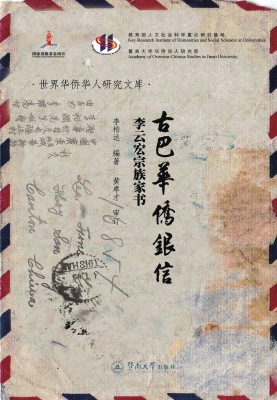 教育部人文社会科学重点研究基地
Key Research Institute of Humanities and Social Sciences at Universities
暨南大学华侨华人研究院
Academy of Overseas Chinese Studies in Jinan University
国家出版基金项目
·世界华侨华人研究文库·
古巴華僑銀信
李云宏宗族家书
李柏达 编著 黄卓才 审订
Hoy San
Canton China
暨南大学出版社